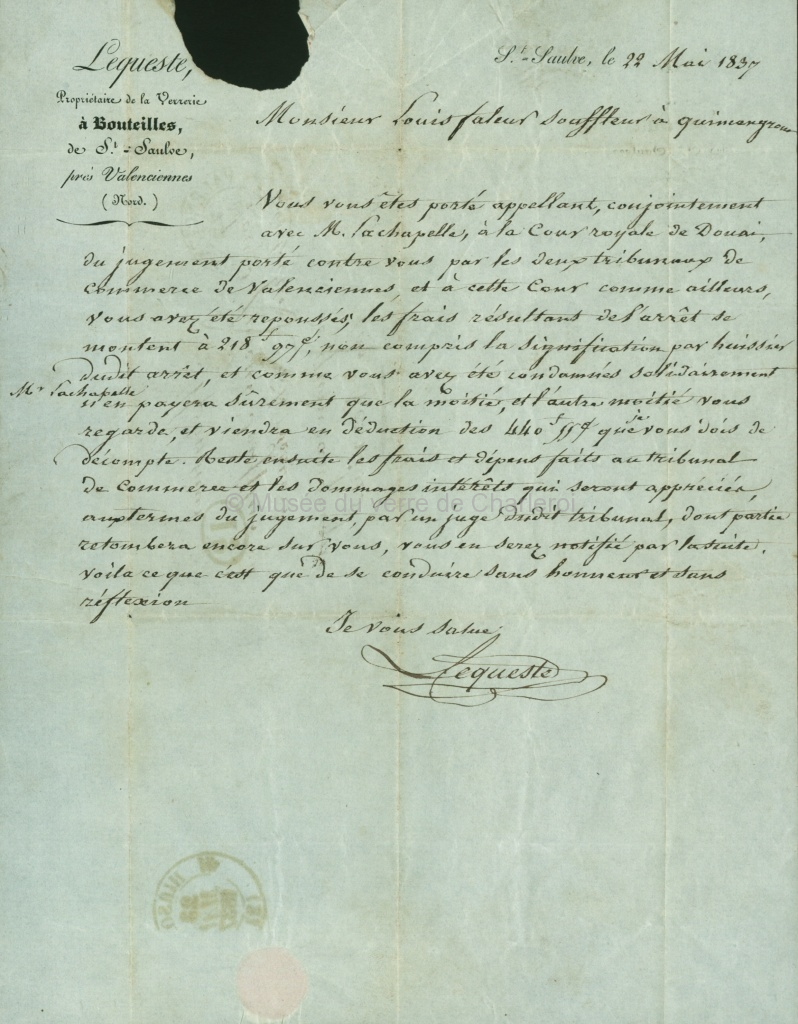 Lequeste,
Propriétaire de la Verrerie
à Bouteilles,
de St.-Saulve,
près Valenciennes
(Nord.)
St.-Saulve, le 22 Mai 1837
Monsieur Louis faleur souffleur à quimengrone
Vous vous êtes porté appellant, conjointement
avec M. Lachapelle, à la Cour royale de Douai,
du jugement porté contre vous par les deux tribunaux de
commerce de Valenciennes, et à cette Cour comme ailleurs,
vous avez été repoussés; les frais résultant de l'arrêt se
montent à 218 f 97 c, non compris la signification par huissier
dudit arrêt, et comme vous avez été condamnés solidairement
Mr Lachapelle n'en payera sûrement que la moitié, et l'autre moitié vous
regarde, et viendra en déduction des 440 f que je vous dois de
décompte. Reste ensuite les frais et dépens faits au tribunal
de Commerce et les dommages intérêts qui seront appréciés,
aux termes du jugement, par un juge dudit tribunal, dont partie
retombera encore sur vous, vous en serez notifié par la suite.
voila ce que c'est que de se conduire sans honneur et sans
réflexion
Je vous salue
Lequeste
© Musée du Verre de Charleroi